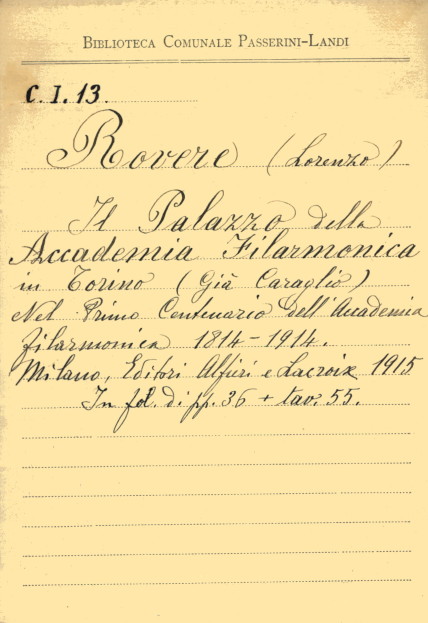 BIBLIOTECA COMUNALE PASSERINI-LANDI
C. I. 13.
Rovere (Lorenzo)
Il Palazzo della
Accademia Filarmonica
in Torino (Già Caraglio)
Nel Primo Centenario dell'Accademia
filarmonica 1814-1914.
Milano, Editori Alfieri e Lacroix 1915
In fol. di pp. 36 + tav. 55.